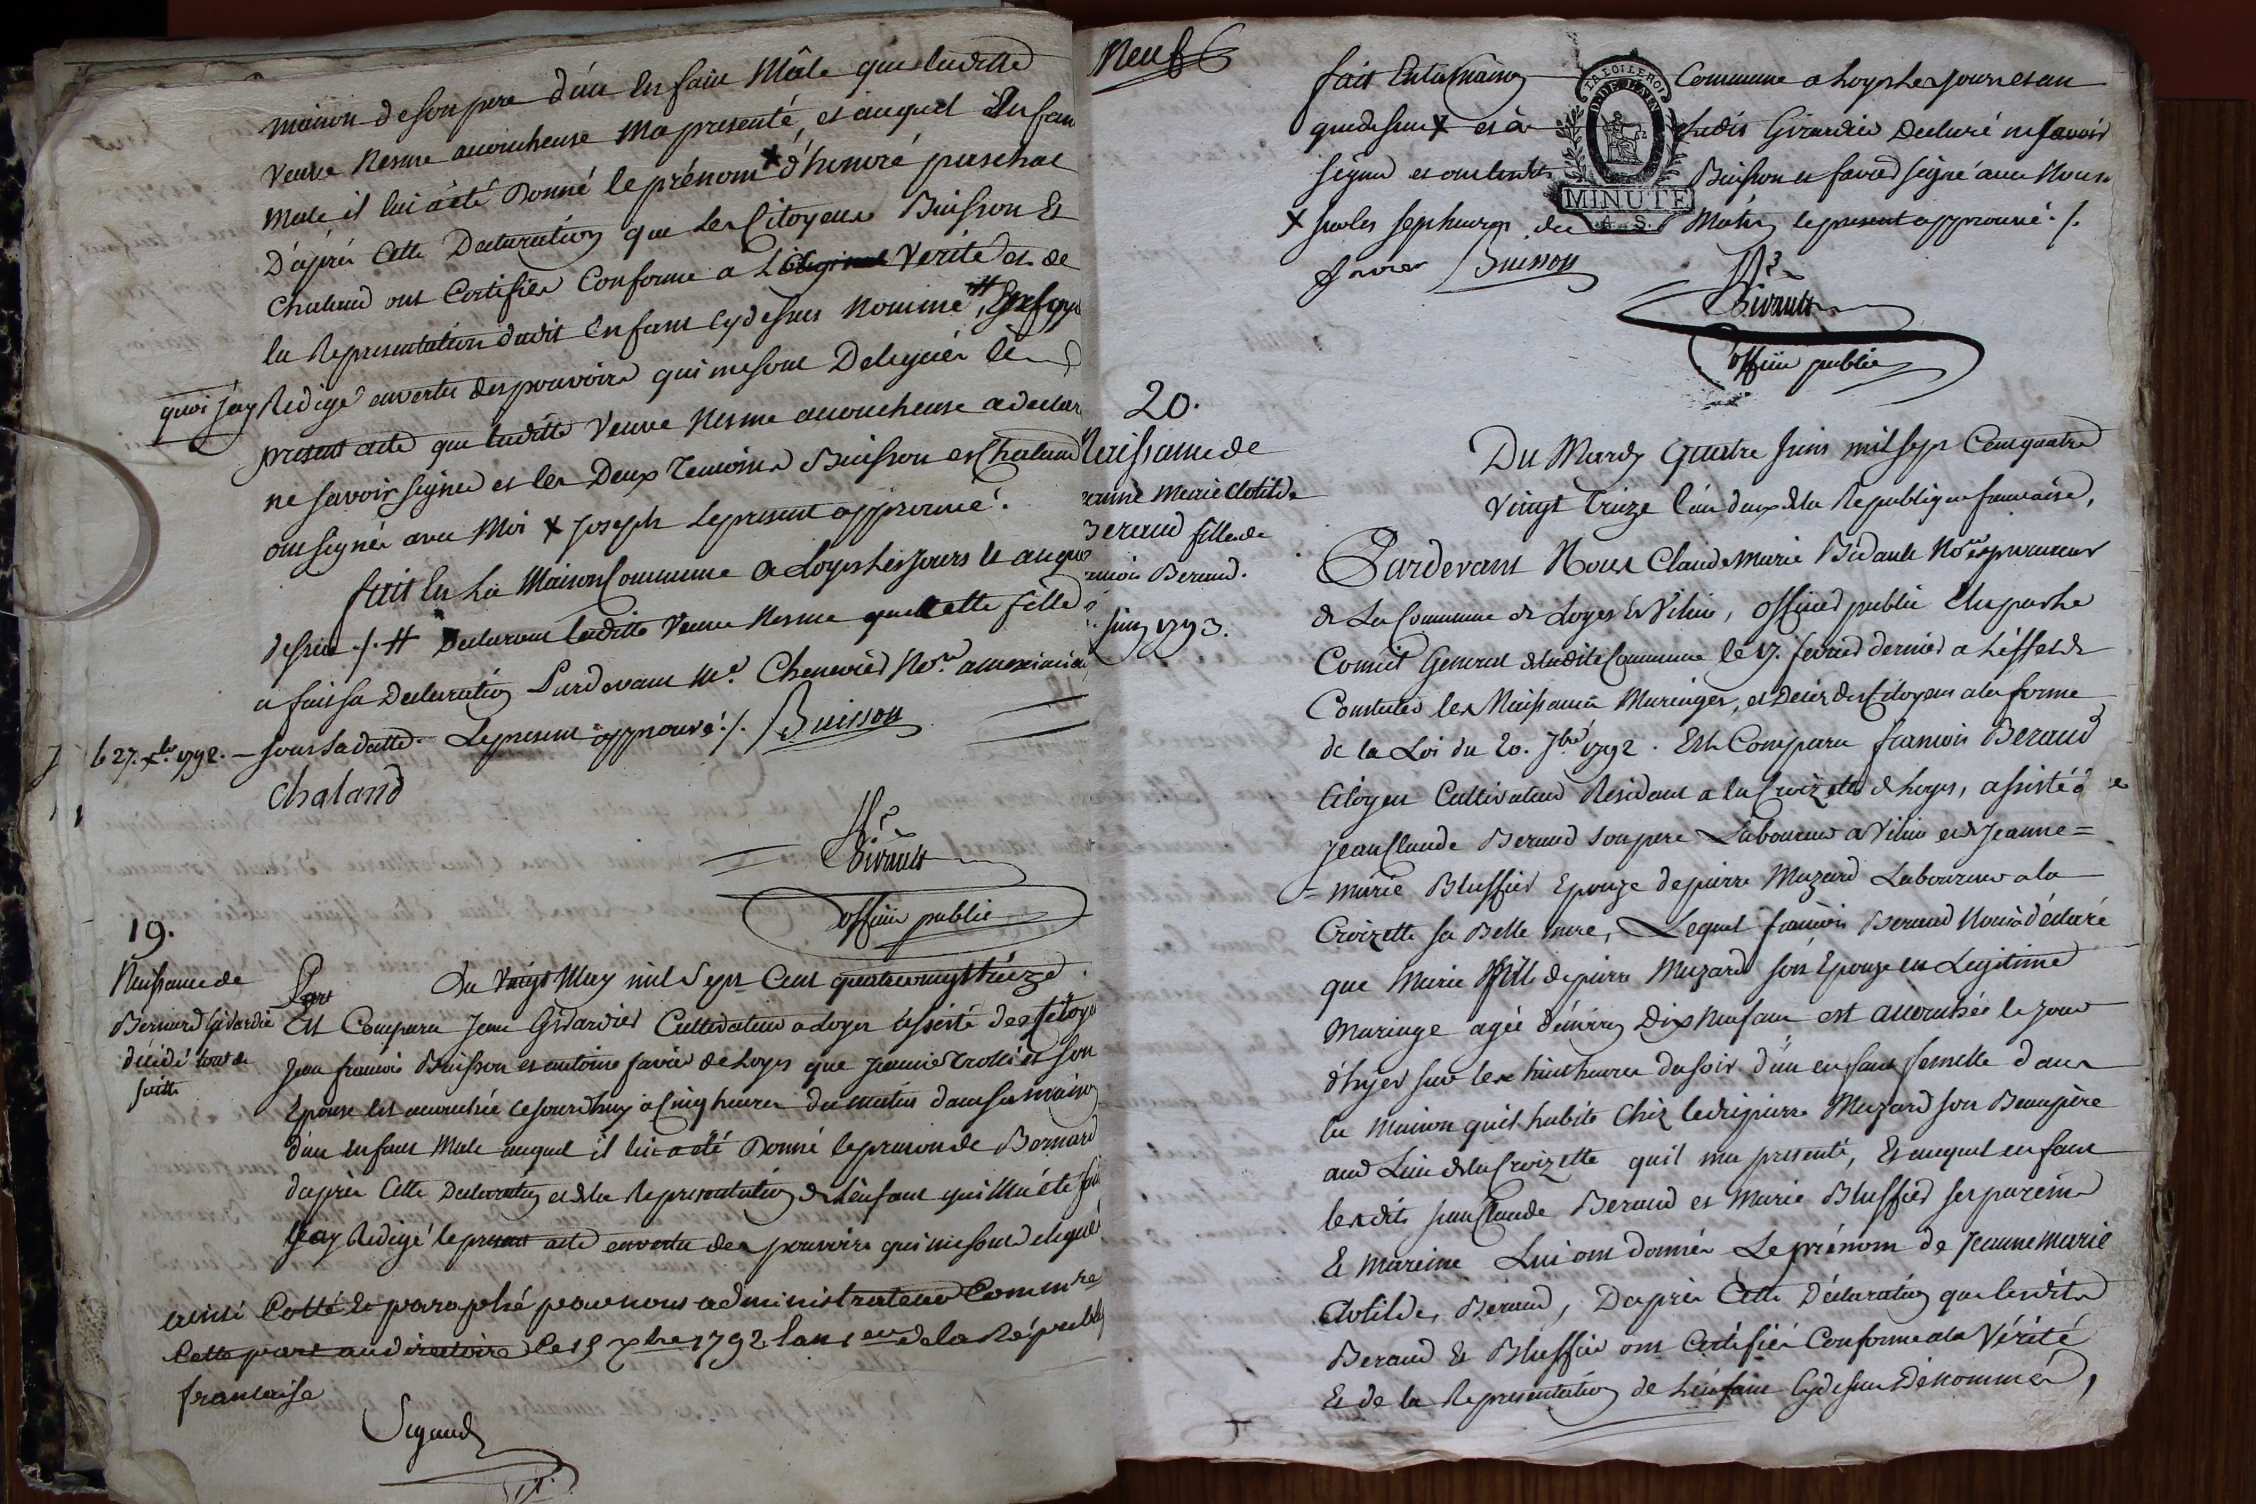 maison de son pere d'un Enfant Mâle que laditte
Veuve Nesme acoucheuse ma presenté, et auquel Enfan
Male il lui a été Donné le prénom x d'honoré paschal
D'aprés Cette Declaration que les Citoyens Buisson Et
Chaland ont Certifiés Conforme a L Verité et de
la Representation dudit Enfant Cydessus Nommé #,
quoi j'ay Redigé envertu des pouvoirs qui me sont Delegués le
present acte que laditte Veuve Nesme acoucheuse a declar
ne savoir signer et les Deux Temoins Buisson et Chaland
ont signés avec Moi x Joseph Lepresent approuvé.
fait En La Maison Commune a Loyes Les jours et an que
dessus ./. # Declarant laditte Veuve Nesme que cette fille
a fait sa Declaration Pardevant Me. Chenevier Nore. a meximieu
le 27. xbre 1792. — sous sa datte. Lepresent approuvé ./. Buisson
Chaland
Bidault
officier public
19.
Naissance de
Bernard Girardier
décédé tout de
suitte
Du Vingt May mil Sept Cent quatrevingt treize
Est Comparu Jean Girardier Cultivateur a Loyes assisté des Citoye
Jean francois Buisson et antoine favier de Loyes que Jeanne son
Epouse Est acouchée cejourdhuy a Cinq heures du matin dans sa maison
d'un Enfant Male auquel il lui a été Donné le prenom de Bernard
d'aprés Cette Declaration et de la Representation de L'enfant qui M'a été fai
J'ay Redigé le present acte envertu des pouvoirs qui me sont delegués
Cotté et paraphé par nous administrateur Commre
Cette part au directoire le 15 xbre 1792 lan 1er de la Républ
francaise
Sigaud
Neuf
LA LOI LE ROI
MINUTE
A. S.
fait En la Maison Commune a Loyes Les jours et an
que dessus x et a Ledit Girardier Declaré ne savoir
signer et ont lesdits Buisson et favier signé avec Nous
x sur les sept heures du Matin le present approuvé ./.
favier Buisson
Bidault
officier public
20.
Naissance de
eanne Marie Clotilde
Beraud fille de
ancois Beraud.
juin 1793.
Du Mardy Quatre Juin mil sept Cent quatre
Vingt Treize l'an deux de la Republique francaise,
Pardevant Nous Claude Marie Bidault Nore et procureur
de La Commune de Loyes et Vilieu, officier public Elu par le
Conseil General de ladite Commune le 17. fevrier dernier a L'effet de
Constater les Naissances Mariages, et Decès des Citoyens a la forme
de la Loi du 20. 7bre 1792. Est Comparu francois Beraud
Citoyen Cultivateur Residant a la Croizette de Loyes, assisté de
Jean Claude Beraud son pere Laboureur a Vilieu et de Jeanne=
=marie Bluffier Epouze de pierre Mazard Laboureur a la
Croizette sa Belle mere, Lequel francois Beraud Nous a déclaré
que Marie fille de pierre Mazard son Epouze en Legitime
Mariage agée d'environ Dix Neuf ans est acouchée le jour
d'hyer sur les huit heures du soir d'un enfant femelle dans
la maison qu'il habite Chez ledit pierre Mazard son Beaupère
aud Lieu de la Croizette qu'il ma presenté, Et auquel enfant
lesdits Jean Claude Beraud et Marie Bluffier ses parein
Et Mareine Lui ont donnés Le prénom de Jeanne Marie
Clotilde Beraud, D'aprés Cette Déclaration que lesdits
Beraud Et Bluffier ont Certifiés Conforme a la Vérité
Et de la Representation de L'enfant Cydessus Dénommé,